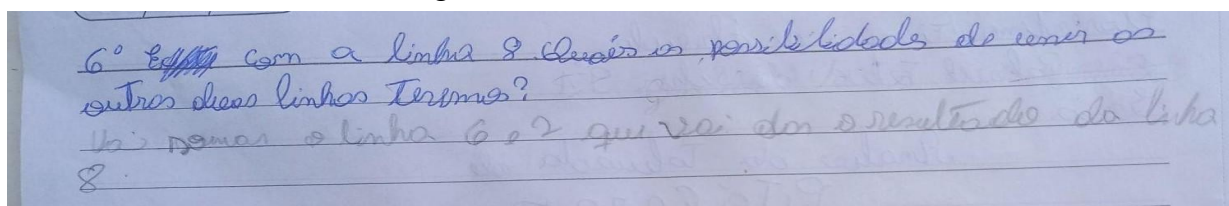 6º com a linha 8 Quais as possibilidade de unir as
outras duas linhas Teremos?
Vai somar a linha 6 e 2 que vai dar o resultado da linha
8.